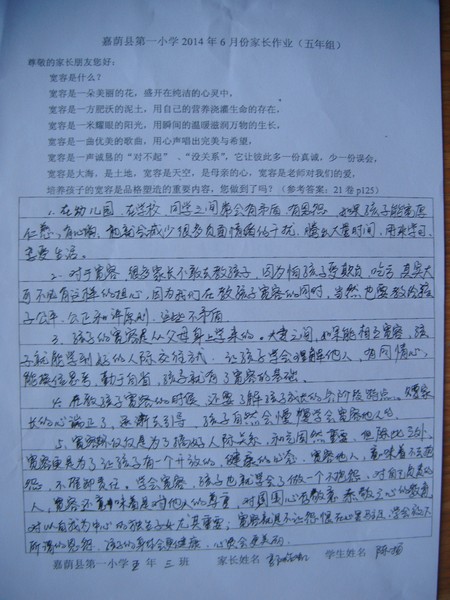 嘉荫县第一小学2014年6月份家长作业（五年组）
尊敬的家长朋友您好：
宽容是什么？
宽容是一朵美丽的花，盛开在纯洁的心灵中，
宽容是一方肥沃的泥土，用自己的营养浇灌生命的存在，
宽容是一米耀眼的阳光，用瞬间的温暖滋润万物的生长，
宽容是一曲优美的歌曲，用心声唱出完美与希望，
宽容是一声诚恳的“对不起”、“没关系”，它让彼此多一份真诚，少一份误会，
宽容是大海，是土地，宽容是天空，是母亲的心，宽容是老师对我们的爱。
培养孩子的宽容是品格塑造的重要内容，您做到了吗？（参考答案：21卷p125）
1. 在幼儿园、在学校，同学之间常会有矛盾，有恩怨，如果孩子能宽厚
仁慈，有心胸，他就会减少很多负面情绪的干扰，腾出大量时间，用来学习、
享受生活。
2. 对于宽容，很多家长不敢去教孩子，因为怕孩子受欺负，吃亏，其实大
可不必有这样的担心，因为我们在教孩子宽容的同时，当然也要教给孩
子公平、公正和讲原则，这些不矛盾。
3. 孩子的宽容是从父母身上学来的。夫妻之间，如果能相互宽容，孩
子就能学到好的人际交往方式，让孩子学会理解他人，有同情心，
能换位思考，勤于自省，孩子就有了宽容的基础。
4. 在教孩子宽容的时候，还要了解孩子成长的各阶段特点。
长的心端正了，逐渐去引导，孩子自然会慢慢学会宽容他人的。
5. 宽容不仅仅是为了搞好人际关系，和善固然重要，但除此之外，
宽容更是为了让孩子有一个开放的、健康的心态，宽容他人，意味着不去抱
怨，不推卸责任，学会宽容，孩子也就学会了做一个不抱怨、对自己负责的
人，宽容还意味着是对他人的尊重，对周围心存敬意
对以自我为中心的独生子女尤其重要；宽容就是不让怨恨在心里
所谓的恩怨，孩子的身体会更健康，心灵会更美丽。
嘉荫县第一小学五年三班 家长姓名 学生姓名 陈